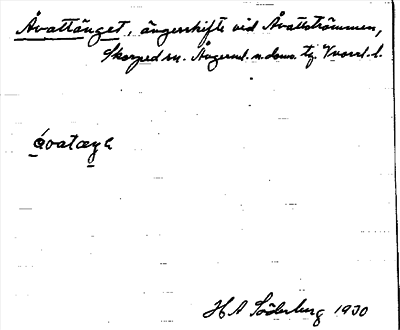 Åvattänget, ängesskifte vid Åvattströmmen,
Skorped sn. Ångerml. n. doms. tg. Vnorrl. l.
åvatæŋɛ
H A Söderberg 1930